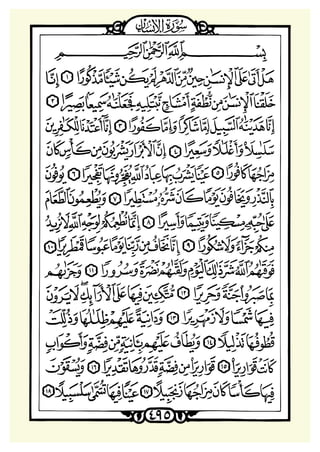 سُورَةُ الإِنْسَان
بِسْمِ ٱللَّهِ ٱلرَّحْمَٰنِ ٱلرَّحِيمِ
هَلْ أَتَىٰ عَلَى ٱلْإِنسَٰنِ حِينٌ مِّنَ ٱلدَّهْرِ لَمْ يَكُن شَيْـًٔا مَّذْكُورًا ١ إِنَّا
خَلَقْنَا ٱلْإِنسَٰنَ مِن نُّطْفَةٍ أَمْشَاجٍ نَّبْتَلِيهِ فَجَعَلْنَٰهُ سَمِيعًۢا بَصِيرًا ٢
إِنَّا هَدَيْنَٰهُ ٱلسَّبِيلَ إِمَّا شَاكِرًا وَإِمَّا كَفُورًا ٣ إِنَّآ أَعْتَدْنَا لِلْكَٰفِرِينَ
سَلَٰسِلَا۟ وَأَغْلَٰلًا وَسَعِيرًا ٤ إِنَّ ٱلْأَبْرَارَ يَشْرَبُونَ مِن كَأْسٍ كَانَ
مِزَاجُهَا كَافُورًا ٥ عَيْنًا يَشْرَبُ بِهَا عِبَادُ ٱللَّهِ يُفَجِّرُونَهَا تَفْجِيرًا ٦ يُوفُونَ
بِٱلنَّذْرِ وَيَخَافُونَ يَوْمًا كَانَ شَرُّهُۥ مُسْتَطِيرًا ٧ وَيُطْعِمُونَ ٱلطَّعَامَ
عَلَىٰ حُبِّهِۦ مِسْكِينًا وَيَتِيمًا وَأَسِيرًا ٨ إِنَّمَا نُطْعِمُكُمْ لِوَجْهِ ٱللَّهِ لَا نُرِيدُ
مِنكُمْ جَزَآءً وَلَا شُكُورًا ٩ إِنَّا نَخَافُ مِن رَّبِّنَا يَوْمًا عَبُوسًا قَمْطَرِيرًا ١٠
فَوَقَىٰهُمُ ٱللَّهُ شَرَّ ذَٰلِكَ ٱلْيَوْمِ وَلَقَّىٰهُمْ نَضْرَةً وَسُرُورًا ١١ وَجَزَىٰهُم
بِمَا صَبَرُوا۟ جَنَّةً وَحَرِيرًا ١٢ مُّتَّكِـِٔينَ فِيهَا عَلَى ٱلْأَرَآئِكِ لَا يَرَوْنَ
فِيهَا شَمْسًا وَلَا زَمْهَرِيرًا ١٣ وَدَانِيَةً عَلَيْهِمْ ظِلَٰلُهَا وَذُلِّلَتْ
قُطُوفُهَا تَذْلِيلًا ١٤ وَيُطَافُ عَلَيْهِم بِـَٔانِيَةٍ مِّن فِضَّةٍ وَأَكْوَابٍ
كَانَتْ قَوَارِيرَا۠ ١٥ قَوَارِيرَا۟ مِن فِضَّةٍ قَدَّرُوهَا تَقْدِيرًا ١٦ وَيُسْقَوْنَ
فِيهَا كَأْسًا كَانَ مِزَاجُهَا زَنجَبِيلًا ١٧ عَيْنًا فِيهَا تُسَمَّىٰ سَلْسَبِيلًا ١٨
٤٩٥